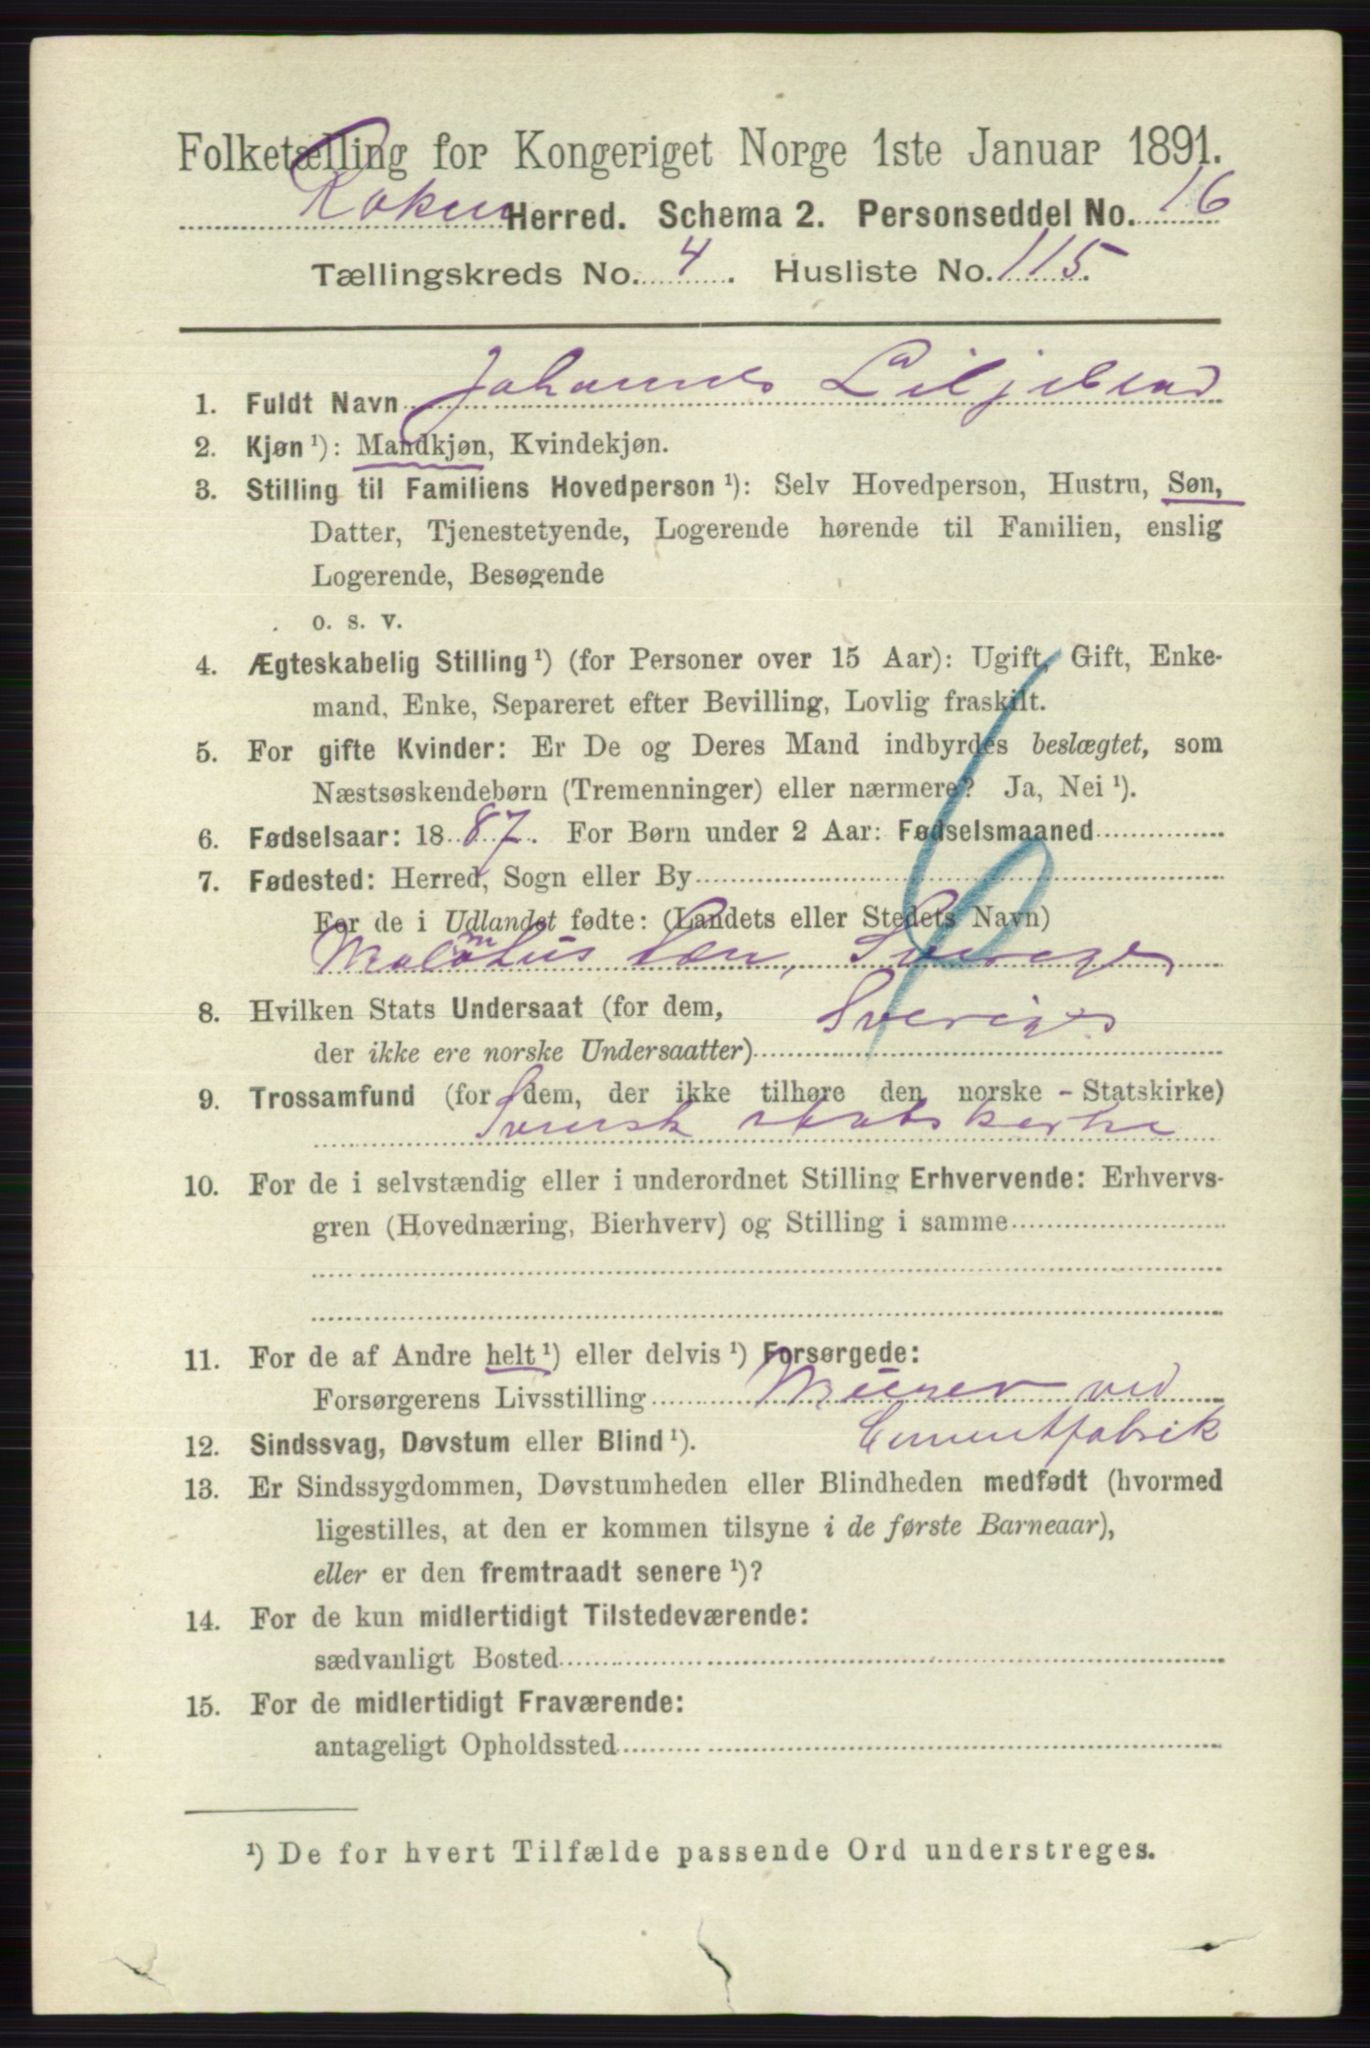 Folketælling for Kongeriget Norge 1ste Januar 1891.
Røken Herred. Schema 2. Personseddel No. 16
Tællingskreds No. 4. Husliste No. 115.
1. Fuldt Navn Johannes Liljeblad
2. Kjøn ¹): Mandkjøn, Kvindekjøn.
3. Stilling til Familiens Hovedperson ¹): Selv Hovedperson, Hustru, Søn,
Datter, Tjenestetyende, Logerende hørende til Familien, enslig
Logerende, Besøgende
o. s. v.
4. Ægteskabelig Stilling ¹) (for Personer over 15 Aar): Ugift, Gift, Enke-
mand, Enke, Separeret efter Bevilling, Lovlig fraskilt.
5. For gifte Kvinder: Er De og Deres Mand indbyrdes beslægtet, som
Næstsøskendebørn (Tremenninger) eller nærmere? Ja, Nei ¹).
6. Fødselsaar: 1887. For Børn under 2 Aar: Fødselsmaaned
7. Fødested: Herred, Sogn eller By
For de i Udlandet fødte: (Landets eller Stedets Navn)
Malmöhus Len, Sverige
8. Hvilken Stats Undersaat (for dem, Sverige
der ikke ere norske Undersaatter)
9. Trossamfund (for dem, der ikke tilhøre den norske - Statskirke)
Svensk statskirke
10. For de i selvstændig eller i underordnet Stilling Erhvervende: Erhvervs-
gren (Hovednæring, Bierhverv) og Stilling i samme
11. For de af Andre helt ¹) eller delvis ¹) Forsørgede:
Forsørgerens Livsstilling Murer ved
Cementfabrik
12. Sindssvag, Døvstum eller Blind ¹).
13. Er Sindssygdommen, Døvstumheden eller Blindheden medfødt (hvormed
ligestilles, at den er kommen tilsyne i de første Barneaar),
eller er den fremtraadt senere ¹)?
14. For de kun midlertidigt Tilstedeværende:
sædvanligt Bosted
15. For de midlertidigt Fraværende:
antageligt Opholdssted
¹) De for hvert Tilfælde passende Ord understreges.